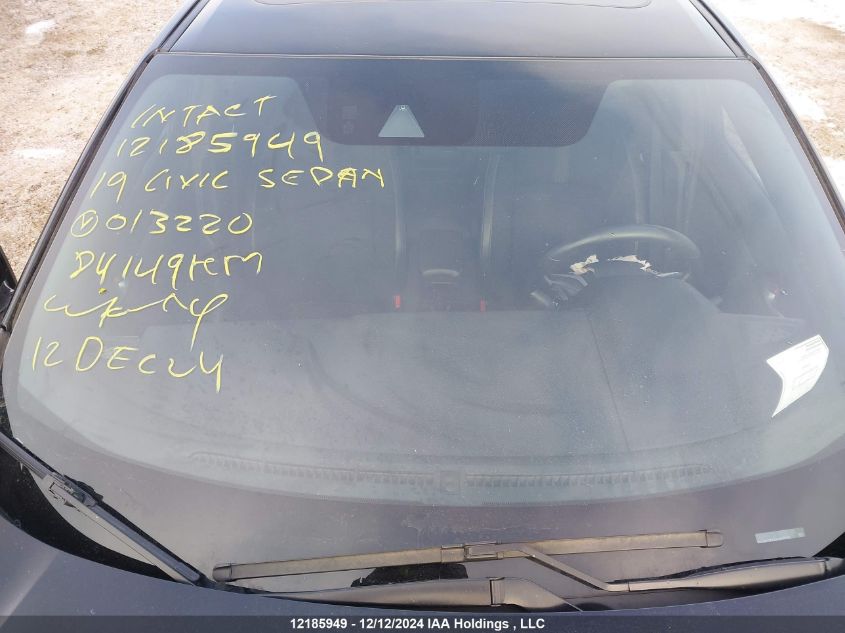 INTACT
12185949
19 CIVIC SEDAN
V 013220
84149KM
12 DEC 24
12185949 - 12/12/2024 IAA Holdings, LLC